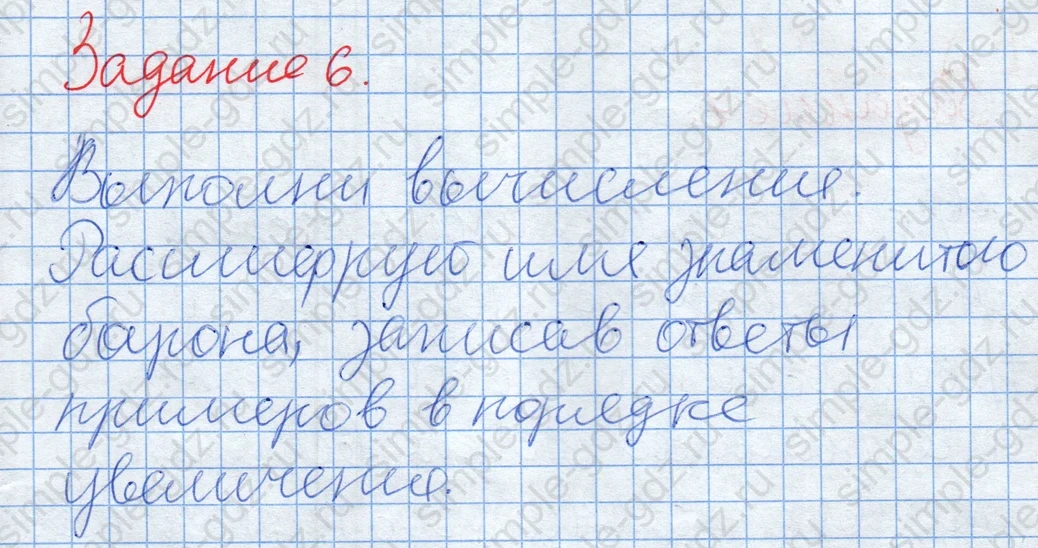 Задание 6.
Выполни вычисление.
Расшифруй имя знаменитого
барона, записав ответы
примеров в порядке
увеличения.
simple-gdz.ru